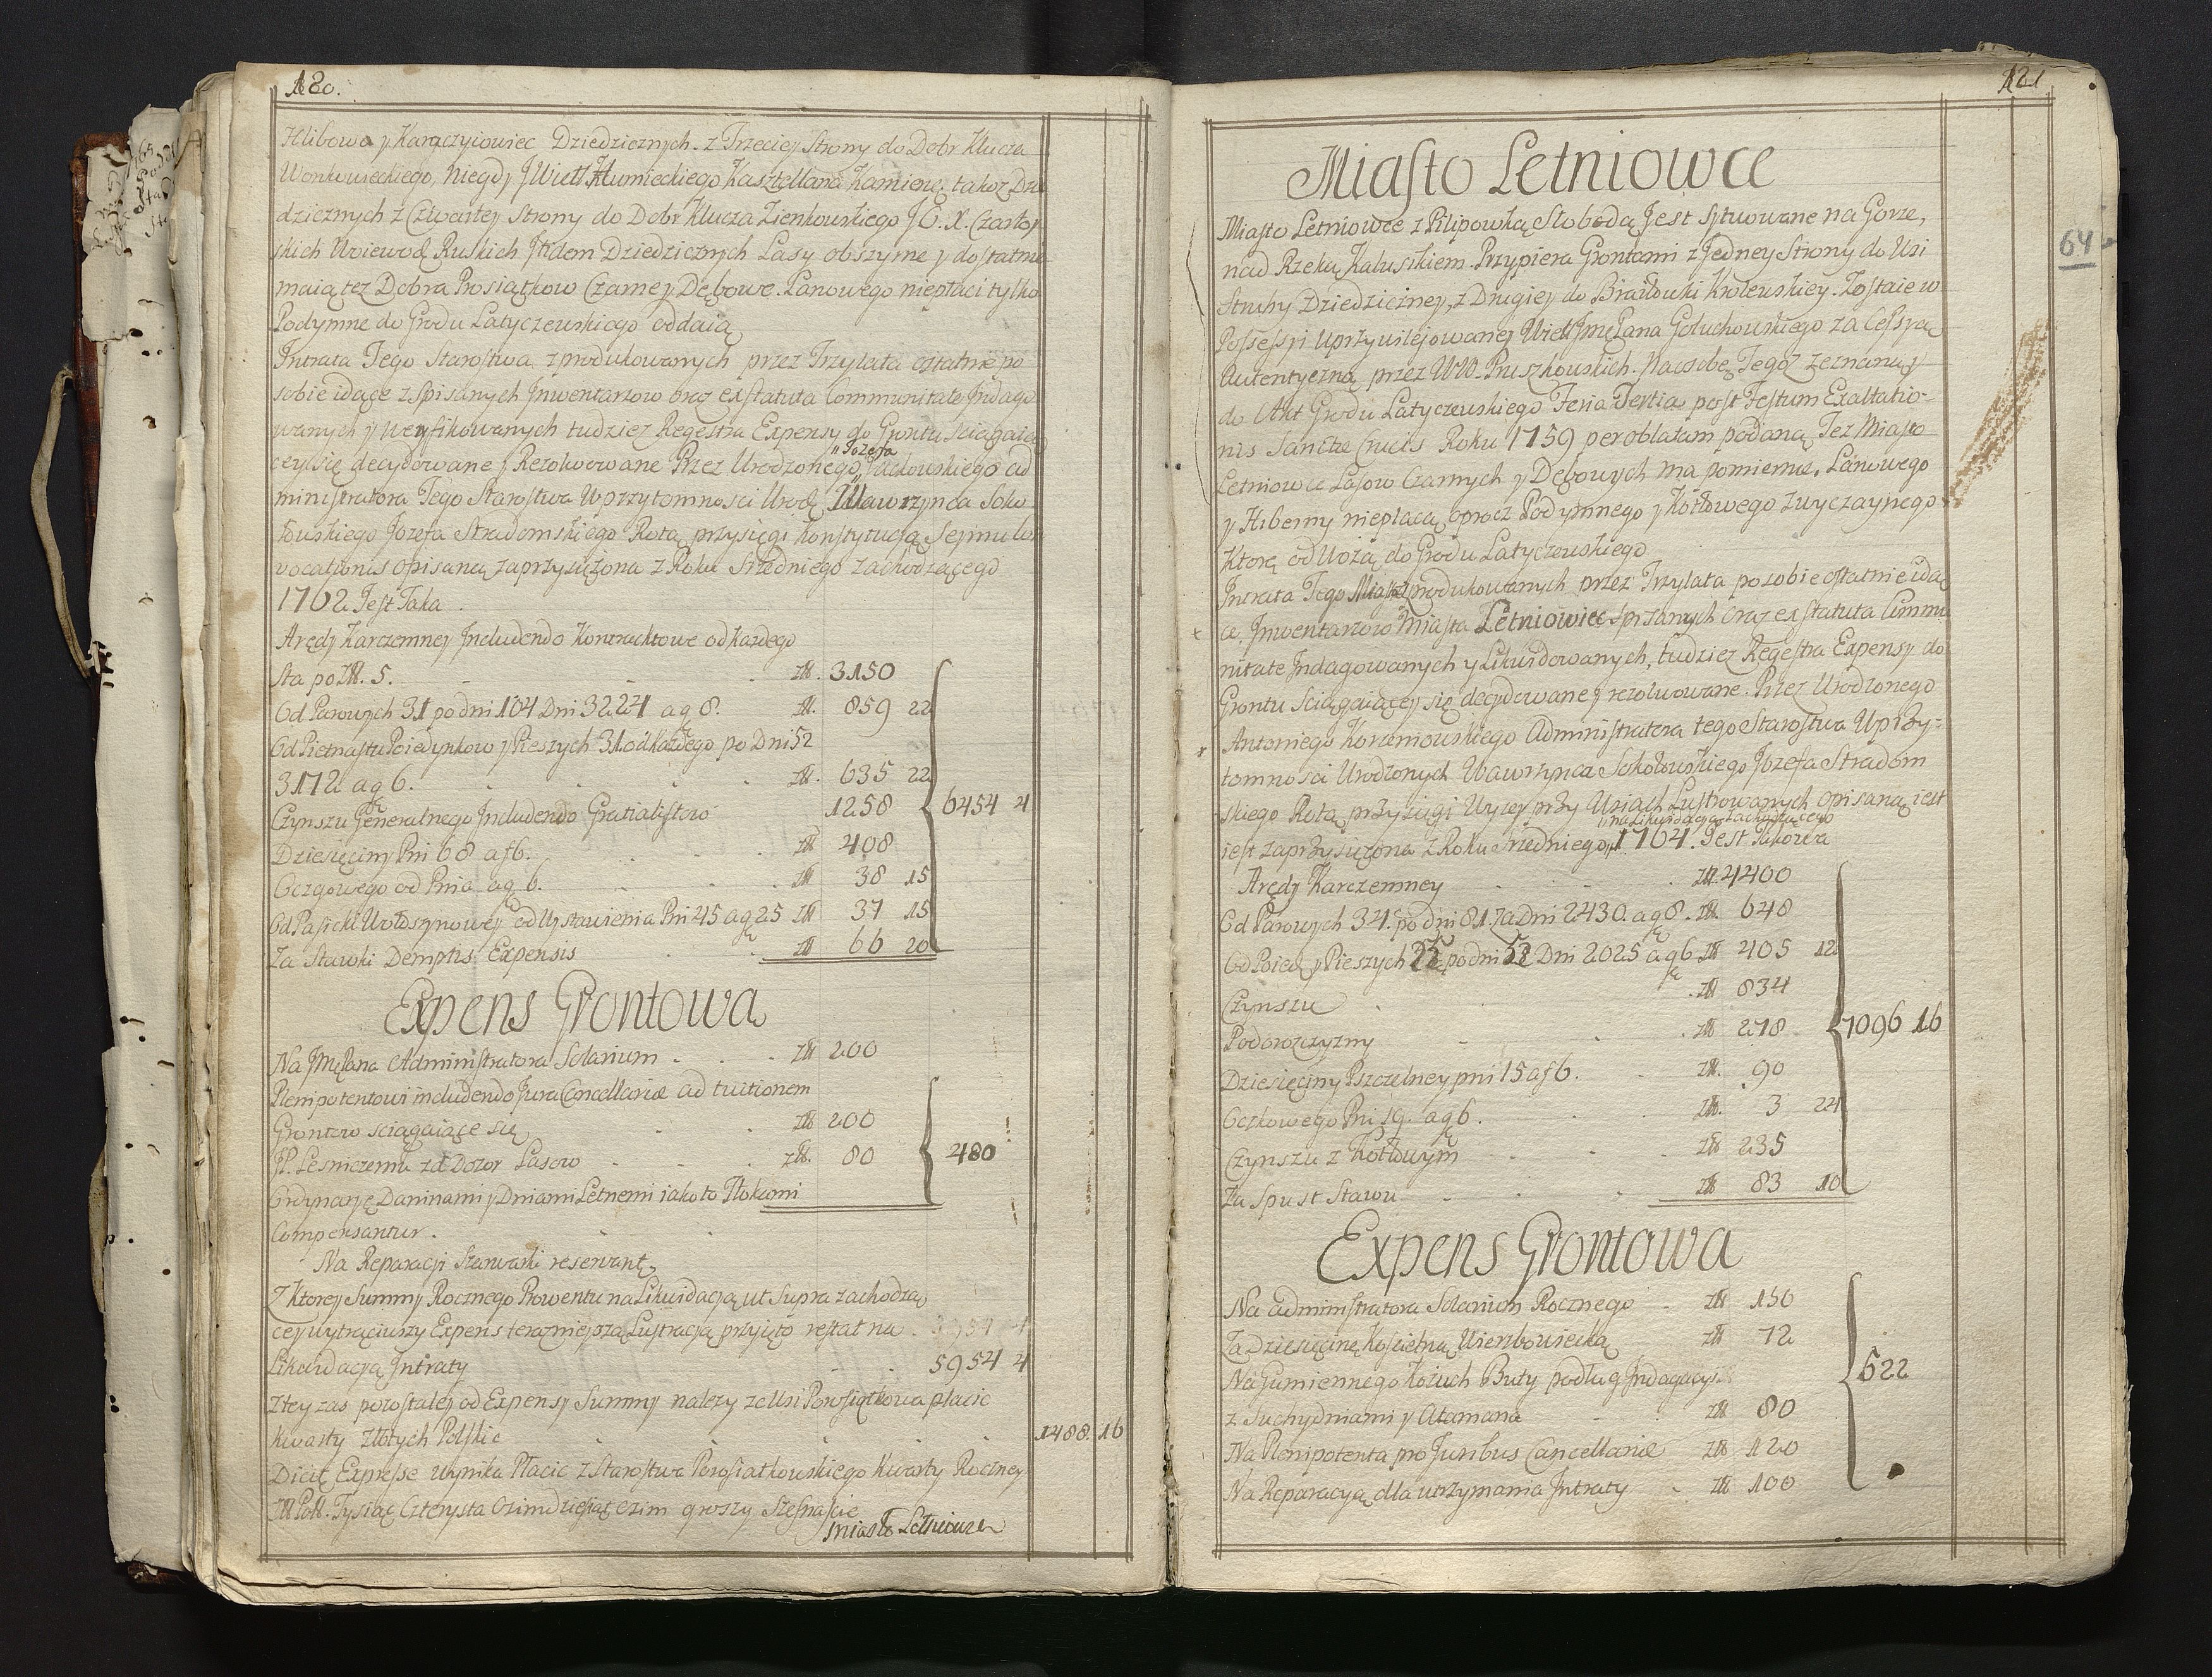 180.
Hlibowa y Karaczyiowiec Dziedzicznych. z Trzeciey Strony do Dobr Klucza
Wonkowieckiego, niegdy JWietl Humieckiego Kasztellana Kamienę takoz Dzie
dzicznych z Czwartey Strony do Dobr Klucza Zienkowskiego JO. X. Czartory
skich Woiewod Ruskich Itidem Dziedzicznych Lasy obszyrne y dostatnie
maią tez Dobra Prosiątkow Czarne y Dębowe. Łanowego niepłaci tylko
Podymne do Grodu Latyczewskiego oddaią
Intrata Tego Starostwa zprodukowanych przez Trzylata ostatnie po
sobie idące z spisanych Inwentarzow oraz exstatuta Communitate Indago
wanych y weryfikowanych tudziez Regestra Expensy do Gruntu sciągaią
cey się decydowane y Rezolwowane Przez Urodzonego Jozefa Jackowskiego ad
ministratora Tego Starostwa W przytomnosci Urodz Wawrzynca Soko
łowskiego Jozefa Stradomskiego Rotą przysięgi Konstytucyą Seymu Con
vocationis opisaną zaprzysiężona z Roku Sredniego zachodzącego
1762 Jest Taka
Arędy Karczemney Includendo Kontraktowe od każdego
Sta po Złł. 5. Złł. 3150
Od Parowych 31 po dni 104 Dni 3224 a gr 8. Zł. 859 22
Od Pietnastu Poiedynkow y Pieszych 31 od każdego po Dni 52
3172 a gr 6. Złł. 635 22
Czynszu Generalnego Includendo Gratialistow 1258
Dziesięciny Pni 68 a f 6. Złł 408
Oczgowego od Pnia a gr 6. Złł 38 15
Od Pasieki Wołoszynowey od Wystawienia Pni 45 a gr 25 Złł 37 15
Za Stawki Demptis Expensis Złł 66 20
6454 4
Expens Grontowa
Na JMę Pana Administratora Solarium Złł 200
Plenipotentowi includendo Jura Cancellariæ ad tuitionem
Grontow sciągaiące się Złł 200
JP. Lesniczemu za Dozor Lasow Złł. 80
480
Ordynaryę Daninami y Dniami Letnemi iako to Tłokami
Compensantur.
Na Reparacyi Szarwarki reservant.
Z Ktorey Summy Rocznego Prowentu na Likwidacyą ut supra zachodzą
cey wytrąciwszy Expens terazniejszą Lustracyą przyięto restat na
Likwidacyą Intraty 5954 4
Z tey zas pozostałey od Expensy Summy należy ze Wsi Porosiątkowa płacic
Kwarty Złotych Polskie 1488. 16
Dicit Expresse wynika Płacic z Starostwa Porosiatkowskiego Kwarty Roczney
Złł Poll. Tysiąc Czterysta Osimdziesiąt ozim groszy Szesnascie
Miasto Letniowce
181
64
Miasto Letniowce
Miasto Letniowce z Pilipowką Słobodą Jest sytuowane na Gorze,
nad Rzeką Kalusikiem. Przypiera Grontami z Jedney Strony do Wsi
Struhy Dziedziczney, z Drugiey do Braiłowki Krolewskiey. Zostaie w
Possessyi Uprzywilejowaney Wiel JMę Pana Gołuchowskiego za Cessyą
Autentyczną przez WW. Pruszkowskich. Na osobę Tegoż zeznaną y
do Akt Grodu Latyczewskiego Feria Tertia post Festum Exaltatio-
nis Sanctæ Crucis Roku 1759 per oblatam podaną Tez Miasto
Letniowce Lasow Czarnych y Dębowych ma pomiernie, Łanowego
y Hiberny niepłacą oprocz Podymnego y Kotłowego zwyczaynego
Ktore odWożą do Grodu Latyczewskiego
Intrata Tego Miasta produkowanych przez Trzylata po sobie ostatnie idą
ce, Inwentarzow Miasta Letniowiec, spisanych oraz exstatuta Commu
nitate Indagowanych y Likwidowanych, tudziez Regestra Expensy do
Grontu sciągaiącey się decydowane y rezolwowane. Przez Urodzonego
Antoniego Korzeniowskiego Administratora tego Starostwa W przy-
tomnosci Urodzonych Wawrzynca Sokołowskiego Jozefa Stradom
skiego Rotą przysięgi Wyzey przy Wsiach Lustrowanych opisaną iest
iest zaprzysiężona z Roku Sredniego na Likwidacyą zachodzącego 1764. Jest Takowa
Arędy Karczemney Złł. 4400
Od Parowych 34. po dni 81. za Dni 2430. a gr 8. Złł. 648
Od Poied. y Pieszych po dni Dni 2025 a gr 6 Złł 405 12
Czynszu Złł 834
Podorozczyzny Złł 278
Dziesięciny Pszczelney pni 15 a f 6. Zł. 90
Oczkowego Pni 19. a gr 6. Złł. 3 24
Czynszu z Kotłowym Złł 235
Za Spust Stawu Złł 83 10
7096 16
Expens Grontowa
Na administratora Solarium Rocznego Złł 150
Za Dziesięcinę Koscielną Wierzbowiecką Złł 72
Na Gumiennego Kożuch Buty podług Indagacyi
z Suchydniami y Atamana Złł 80
Na Plenipotenta pro Juribus Cancellariæ Złł 120
Na Reparacyą dla utrzymania Intraty Złł 100
522